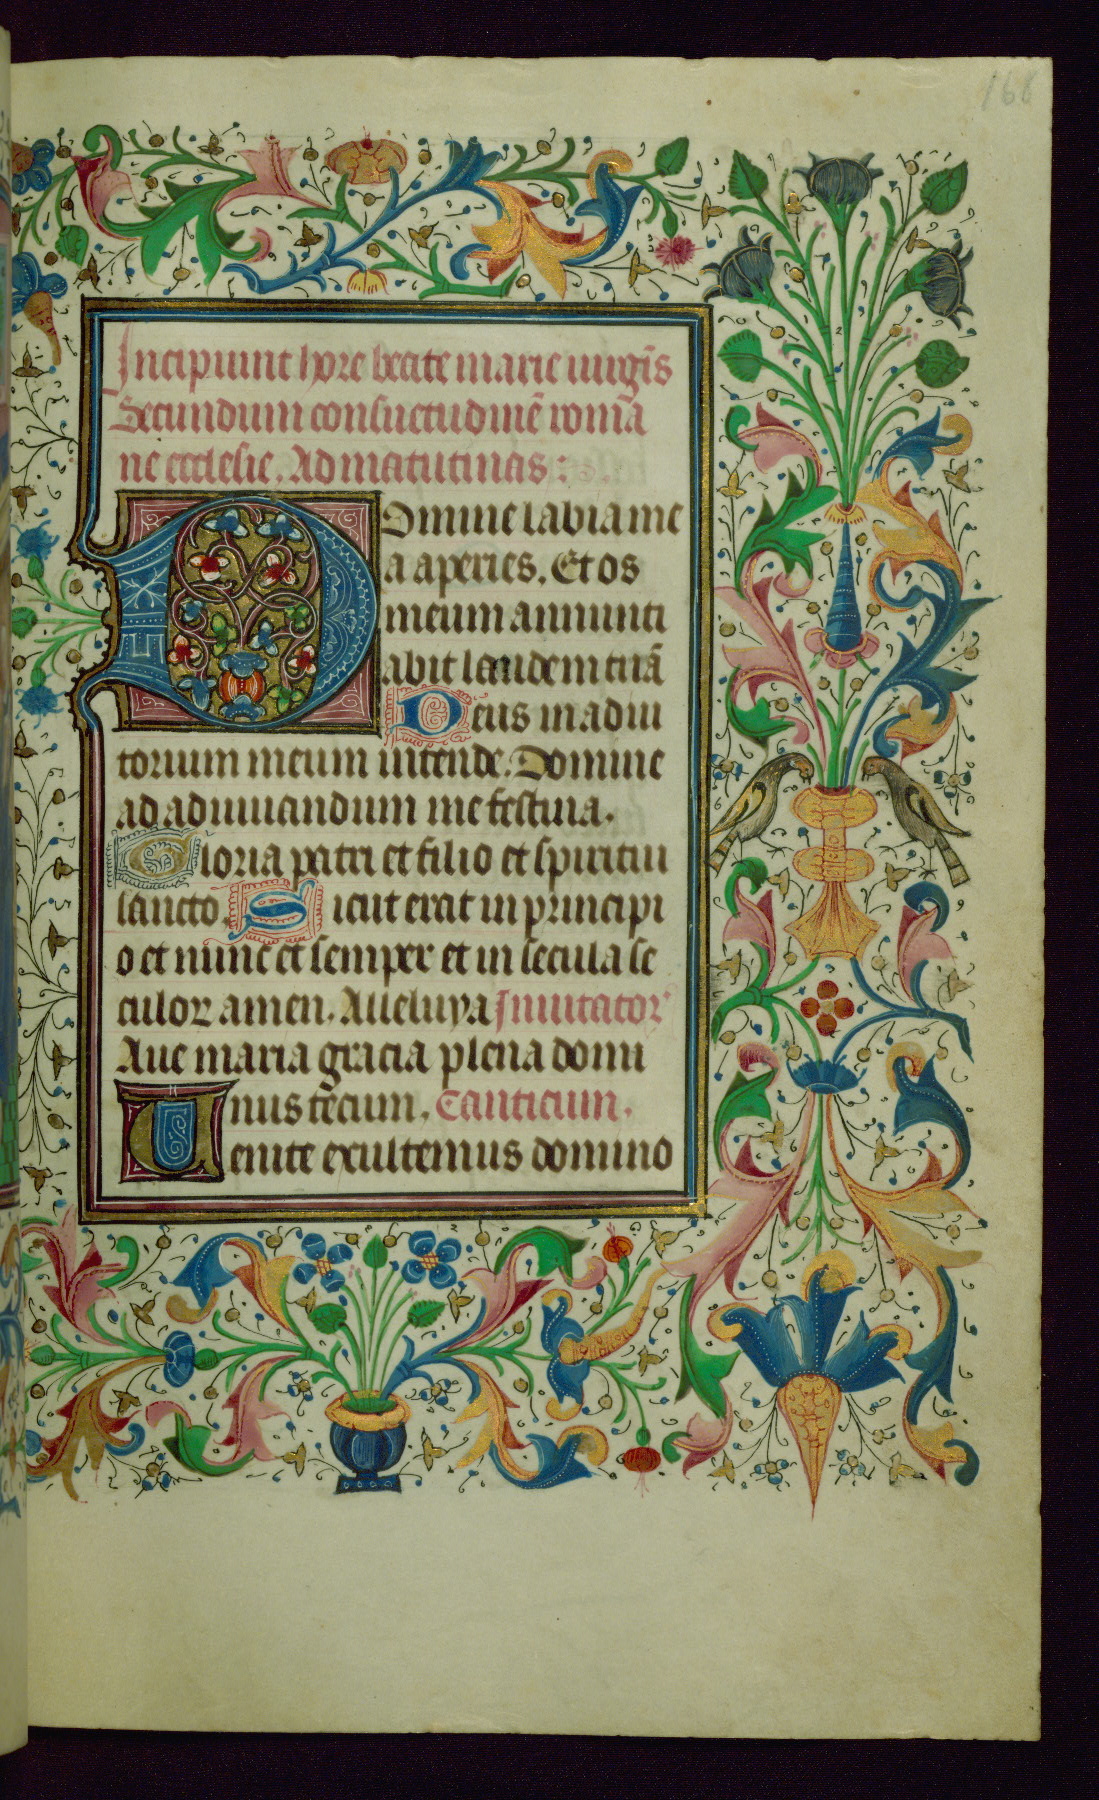 168
Incipiunt hore beate marie uirgīs
Secundum consuetudinē roma
ne ecclesie. Ad matutinas :
Domine labia me
a aperies. Et os
meum annunti
abit laudem tuā
Deus in adiu
torium meum intende. Domine
ad adiuuandum me festina.
Gloria patri et filio et spiritui
sancto. Sicut erat in principi
o et nunc et semper et in secula se
culoꝝ amen. Alleluya Inuitator᾽
Aue maria gracia plena domi
nus tecum. Canticum.
Uenite exultemus domino